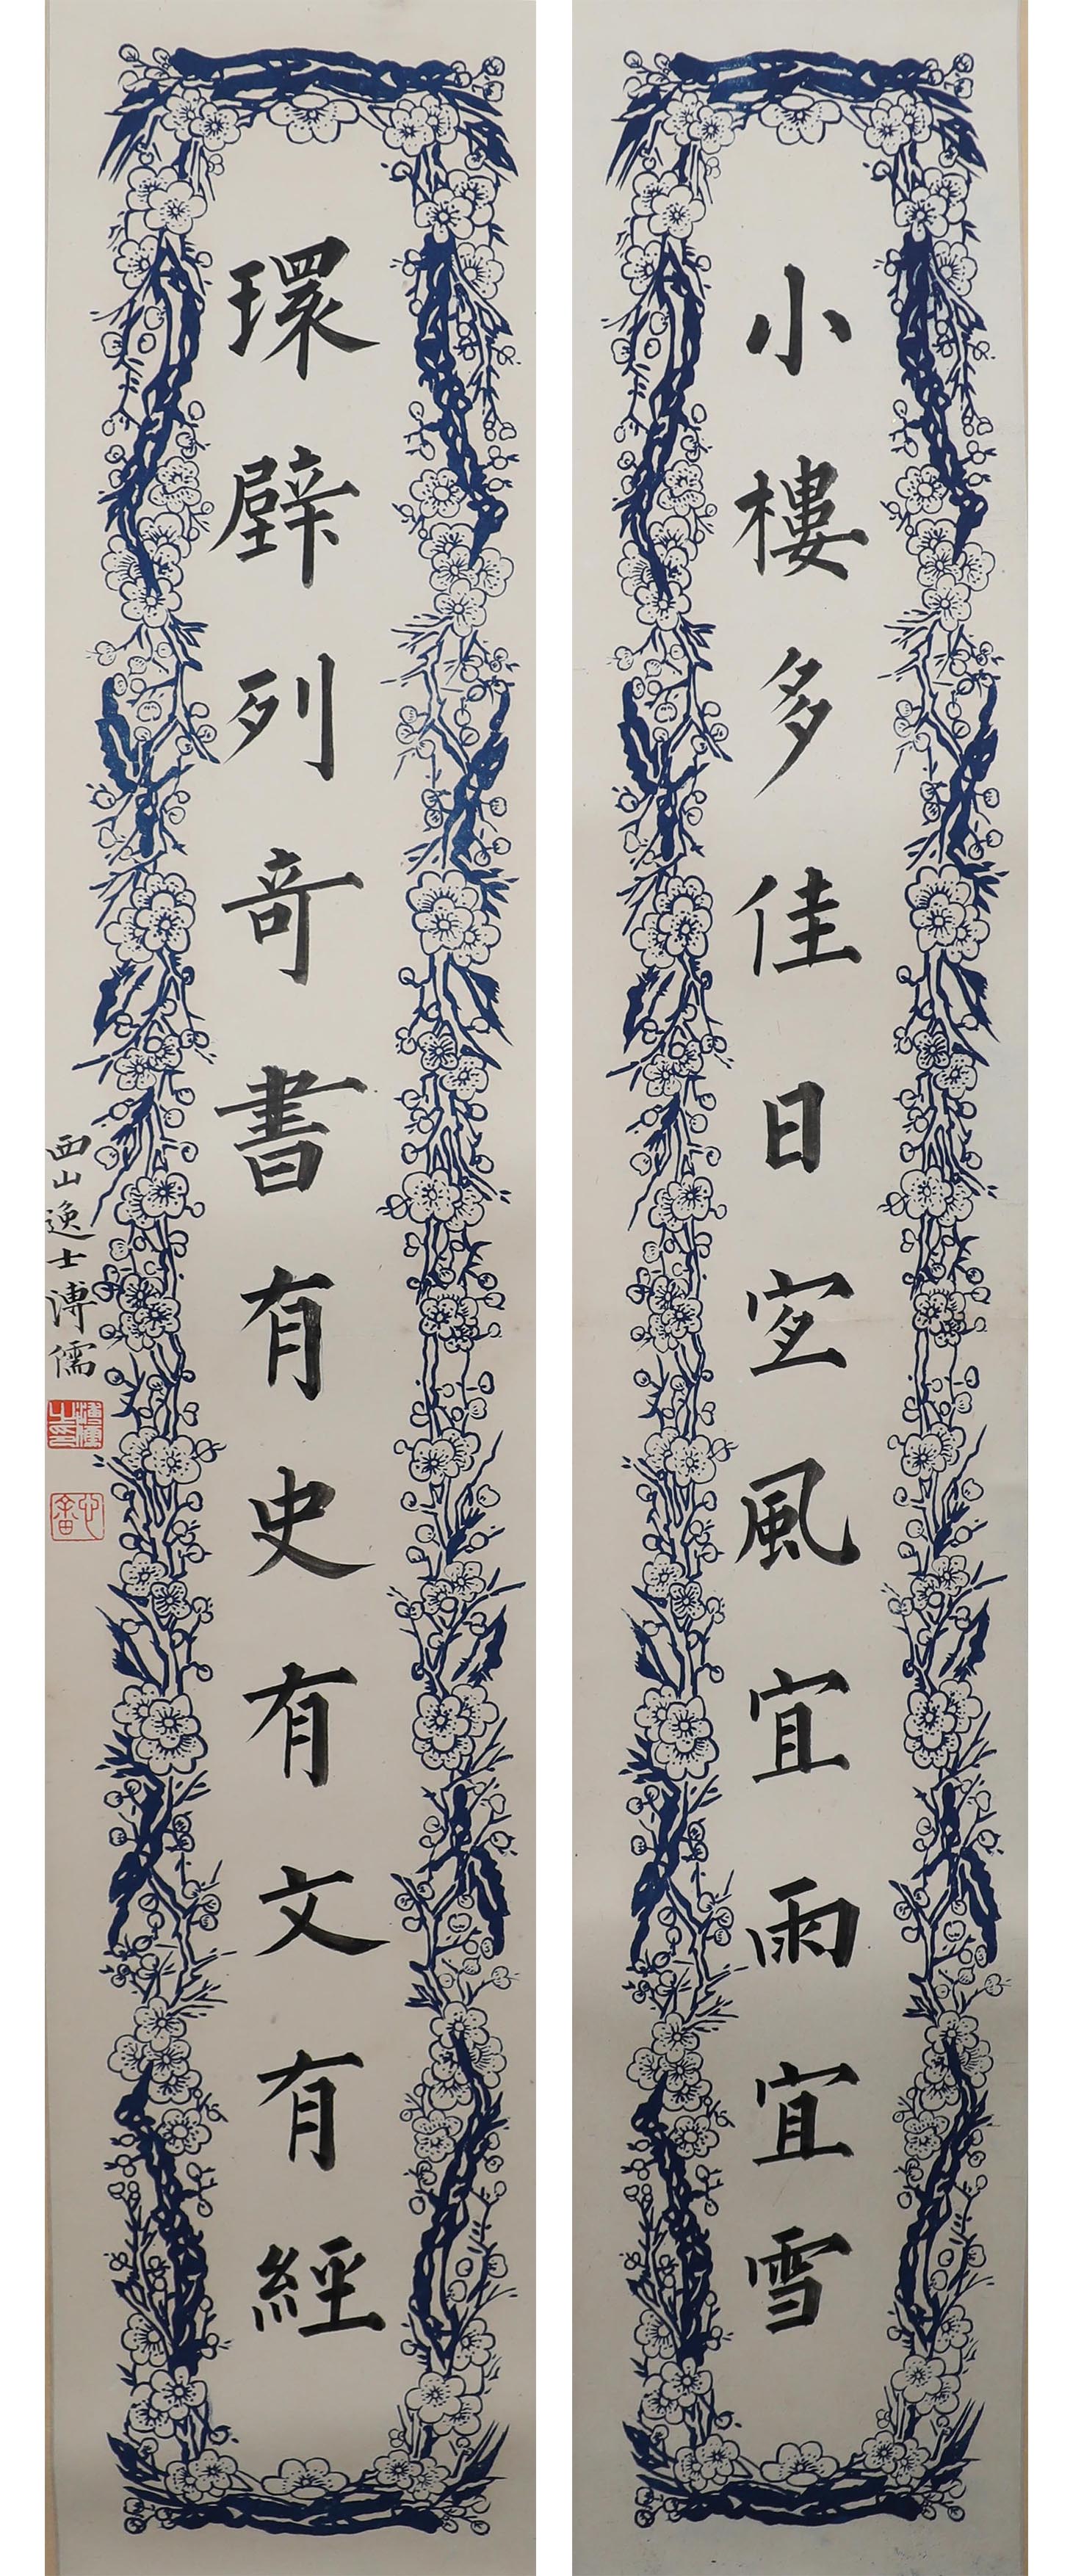 小樓多佳日宜風宜雨宜雪
環壁列奇書有史有文有經
西山逸士溥儒
溥儒之印
心畬